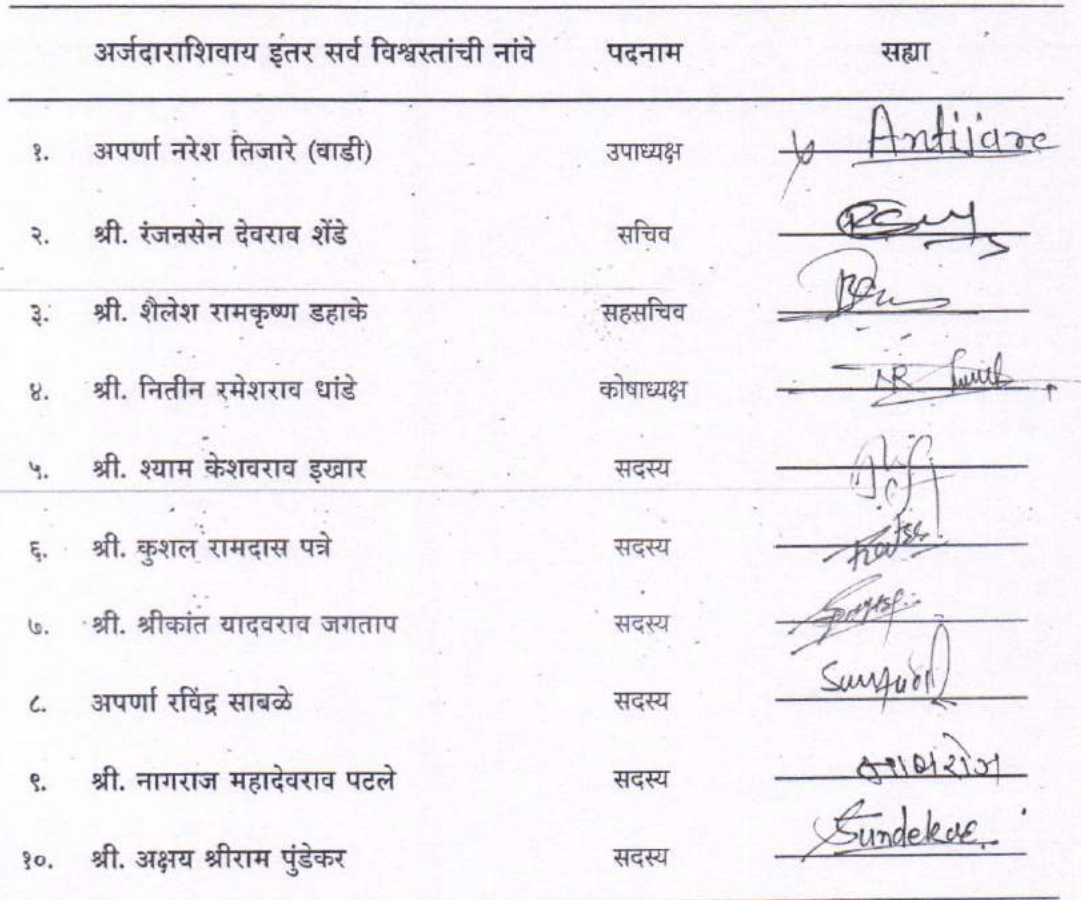 अर्जदाराशिवाय इतर सर्व विश्वस्तांची नांवे पदनाम सह्या
१. अपर्णा नरेश तिजारे (वाडी) उपाध्यक्ष Antijare
२. श्री. रंजनसेन देवराव शेंडे सचिव
३. श्री. शैलेश रामकृष्ण डहाके सहसचिव
४. श्री. नितीन रमेशराव धांडे कोषाध्यक्ष
५. श्री. श्याम केशवराव इखार सदस्य
६. श्री. कुशल रामदास पत्रे सदस्य
७. श्री. श्रीकांत यादवराव जगताप सदस्य
८. अपर्णा रविंद्र साबळे सदस्य
९. श्री. नागराज महादेवराव पटले सदस्य
१०. श्री. अक्षय श्रीराम पुंडेकर सदस्य